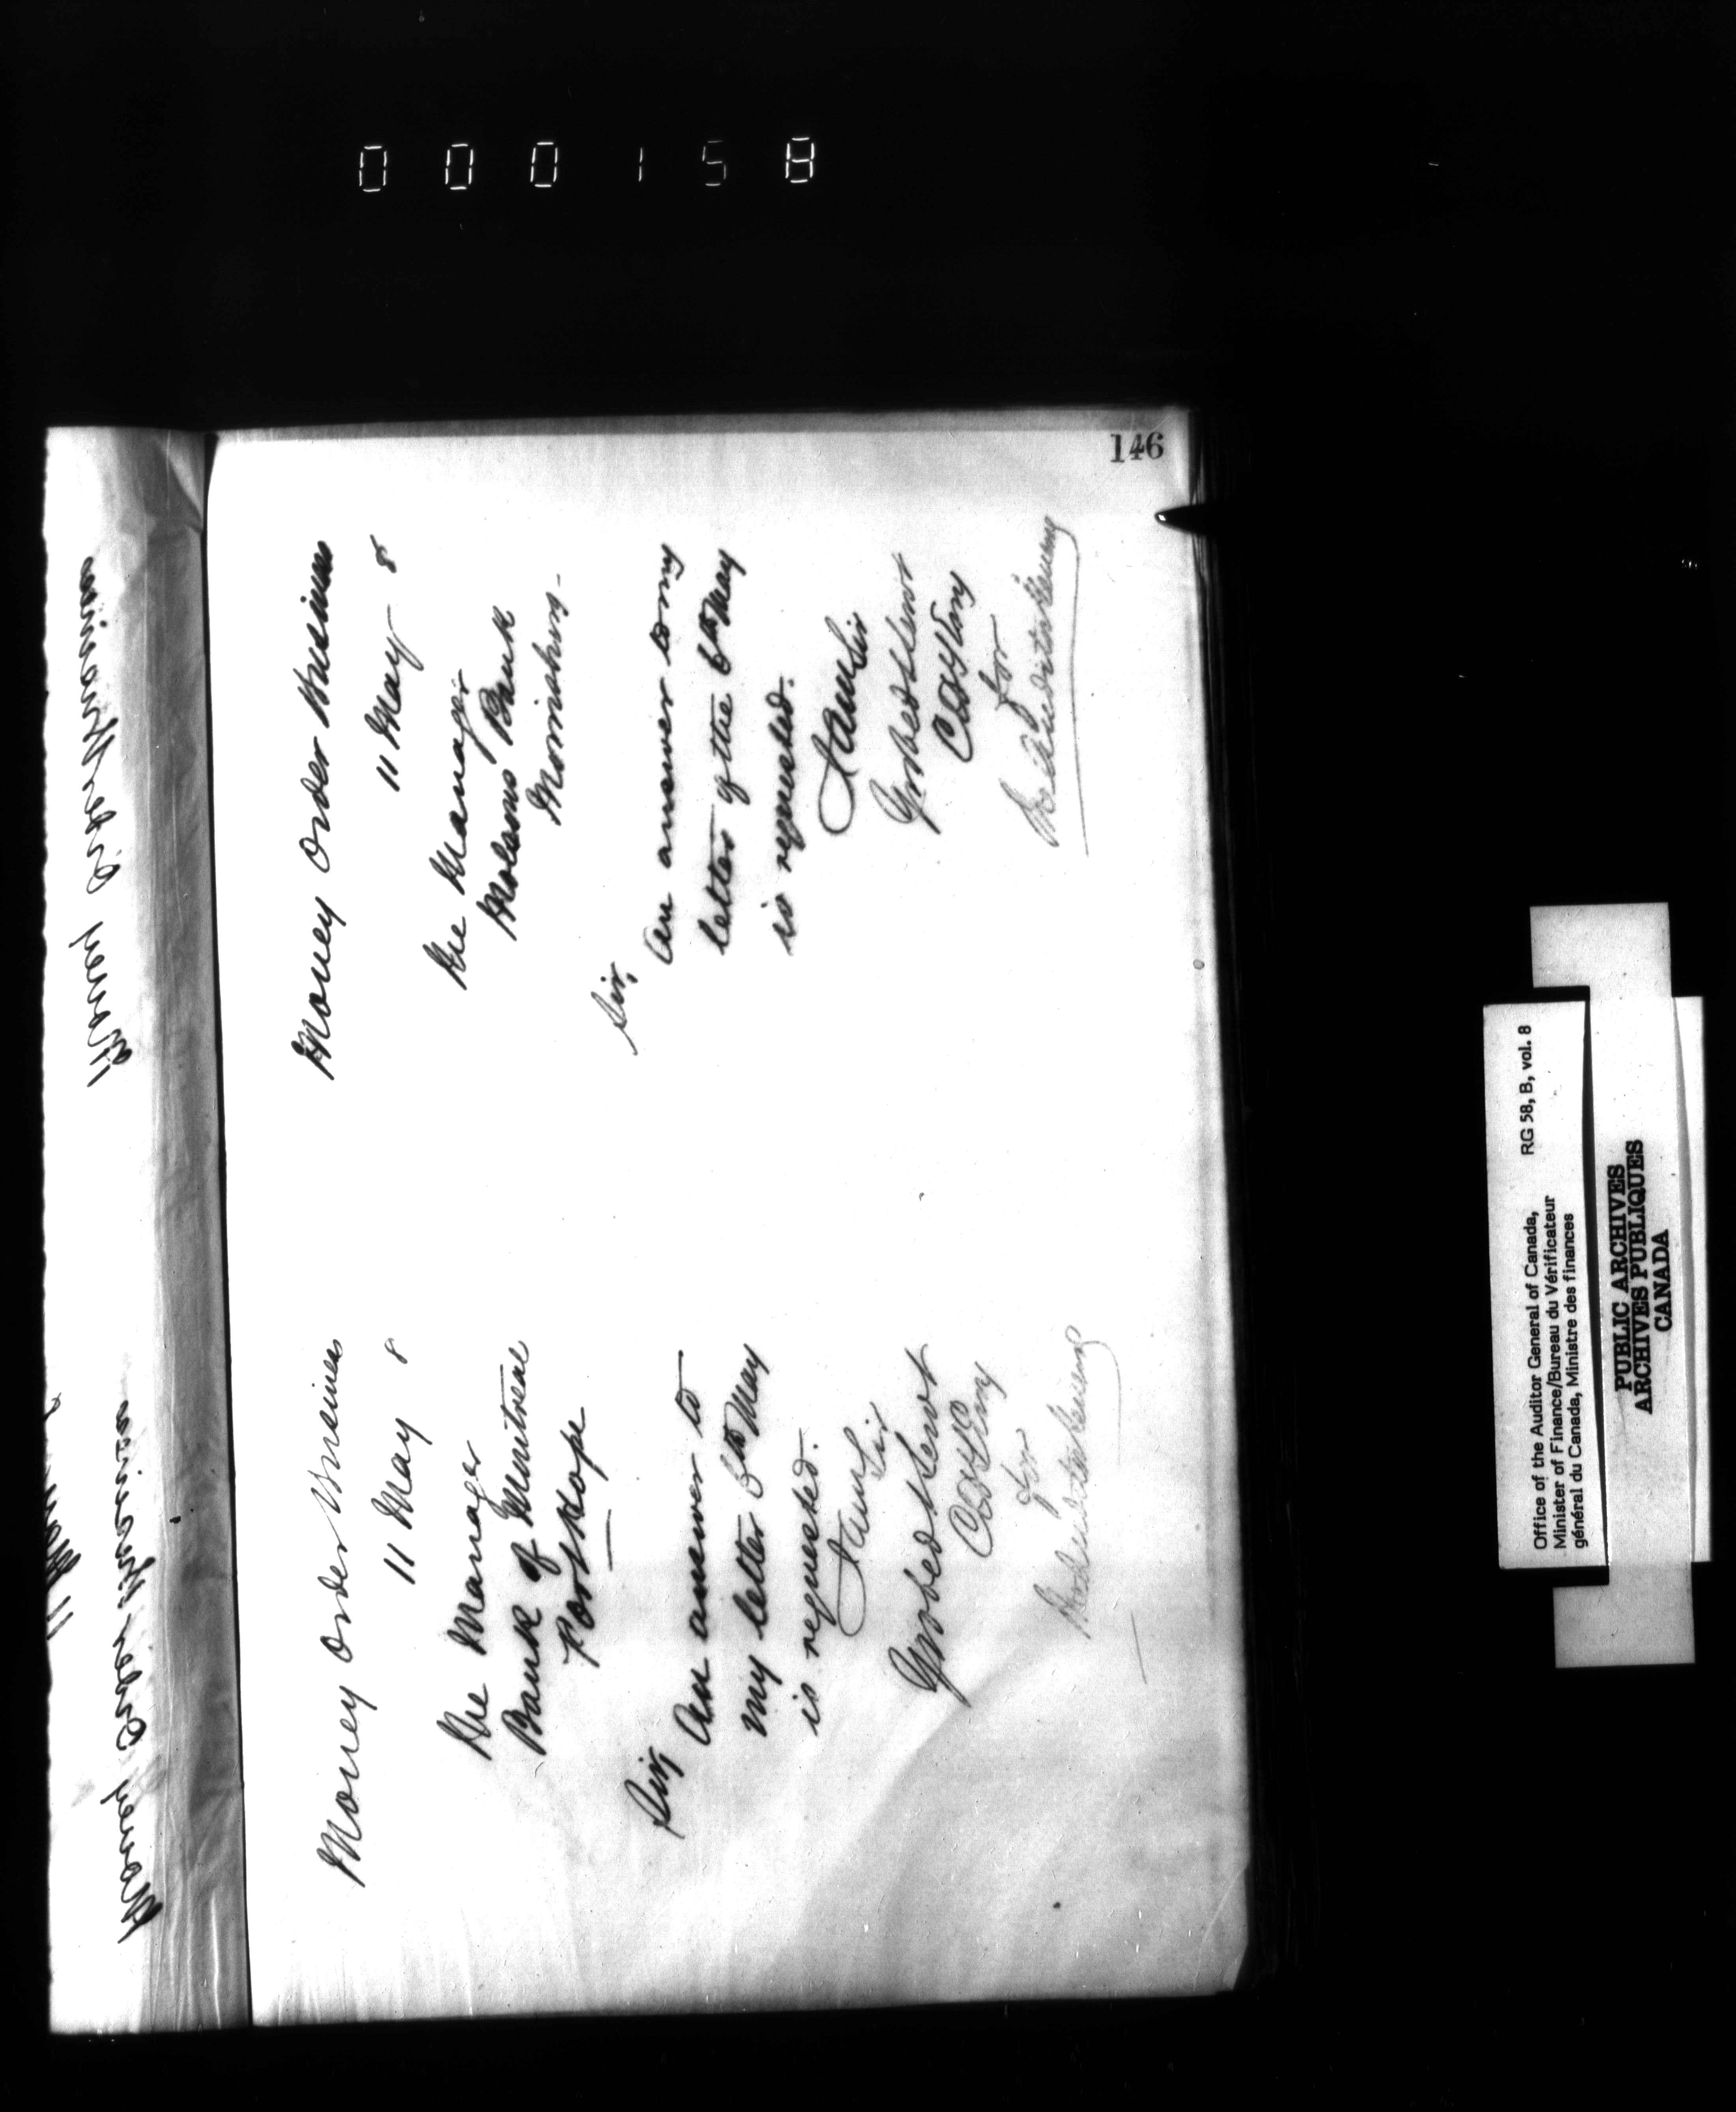 000158
146
Money Order Business
11 May 8
The Manager
Bank of Montreal
Port Hope
Sir,
An answer to
my letter 6th May
is requested.
I am Sir
Yr obed Servt
for
Auditor General
Money Order Business
11 May 8
The Manager
Molsons Bank
Morrisburg.
Sir,
An answer to my
letter of the 6th May
is requested.
I am Sir
Yr obed Servt
for
The Auditor General
Office of the Auditor General of Canada, RG 58, B, vol. 8
Minister of Finance/Bureau du Vérificateur
général du Canada, Ministre des finances
PUBLIC ARCHIVES
ARCHIVES PUBLIQUES
CANADA